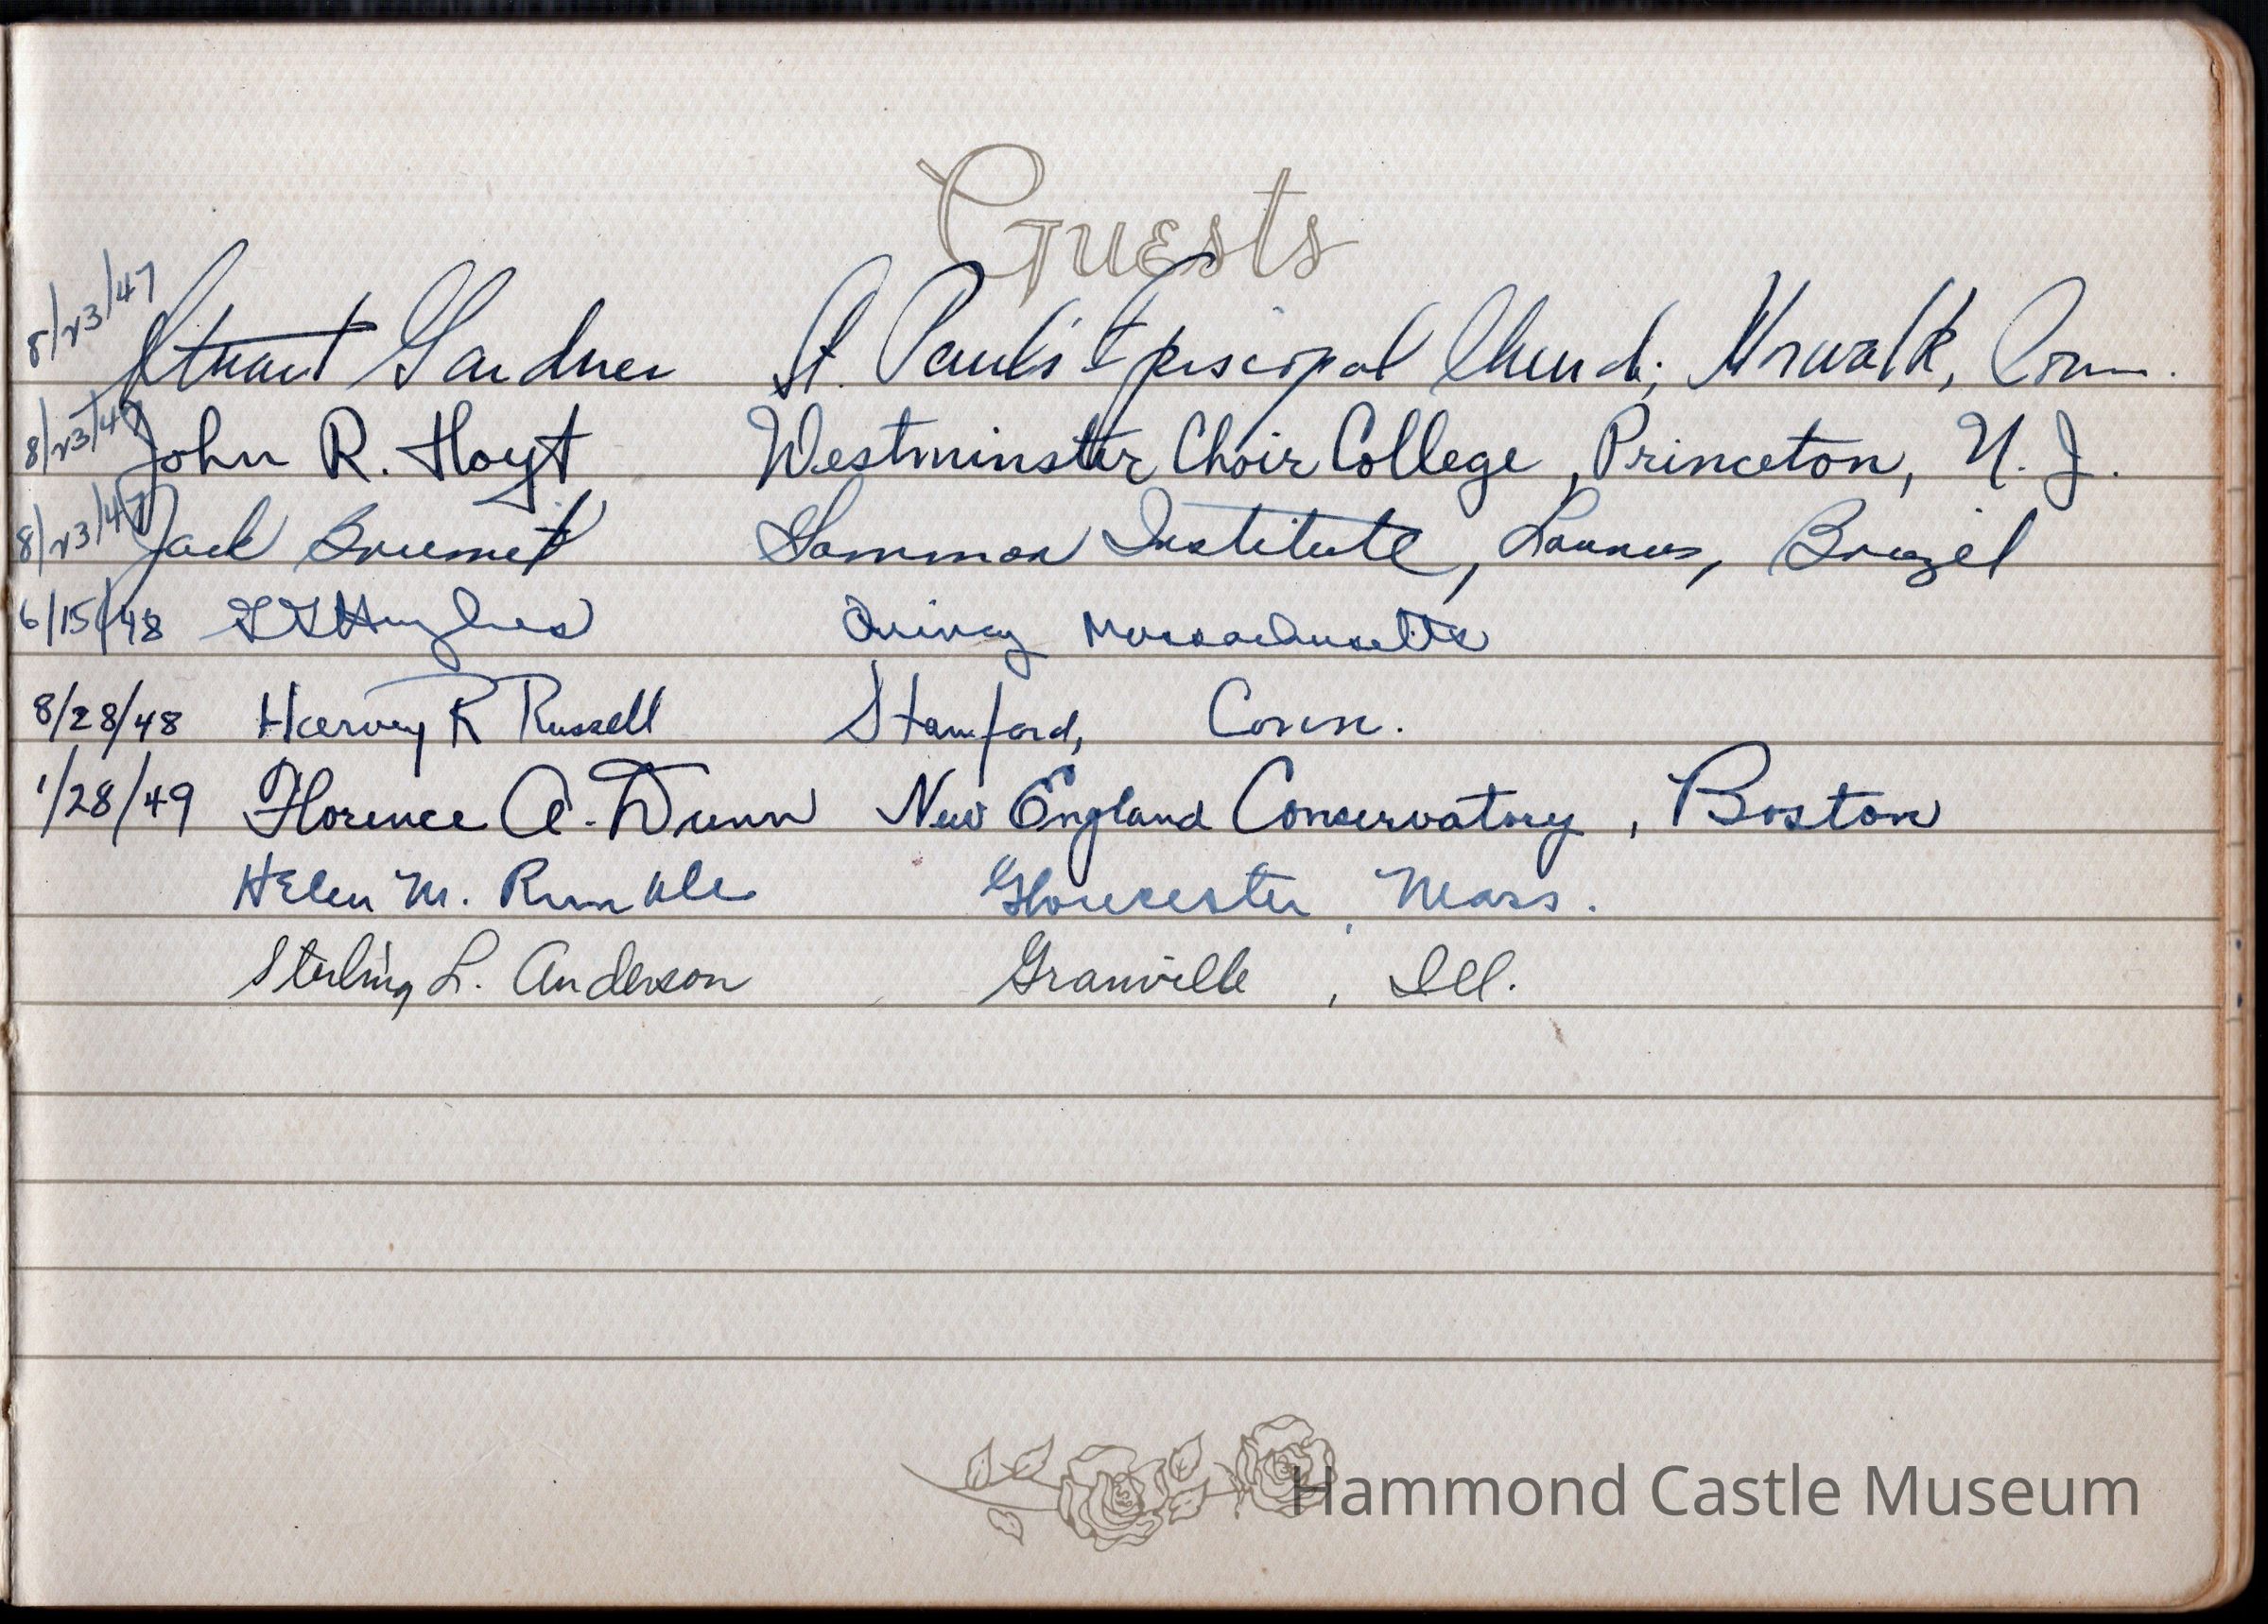 Guests
8/23/47 Stuart Gardner St. Paul's Episcopal Church, Norwalk, Conn.
8/23/47 John R. Hoyt Westminster Choir College, Princeton, N. J.
8/23/47 Jack Institute, Brazil
6/15/48 Hughes Quincy Massachusetts
8/28/48 Harvey R Russell Stamford, Conn.
1/28/49 Florence A. Dunn New England Conservatory, Boston
Helen M. Gloucester, Mass.
Sterling L. Anderson Granville, Ill.
Hammond Castle Museum